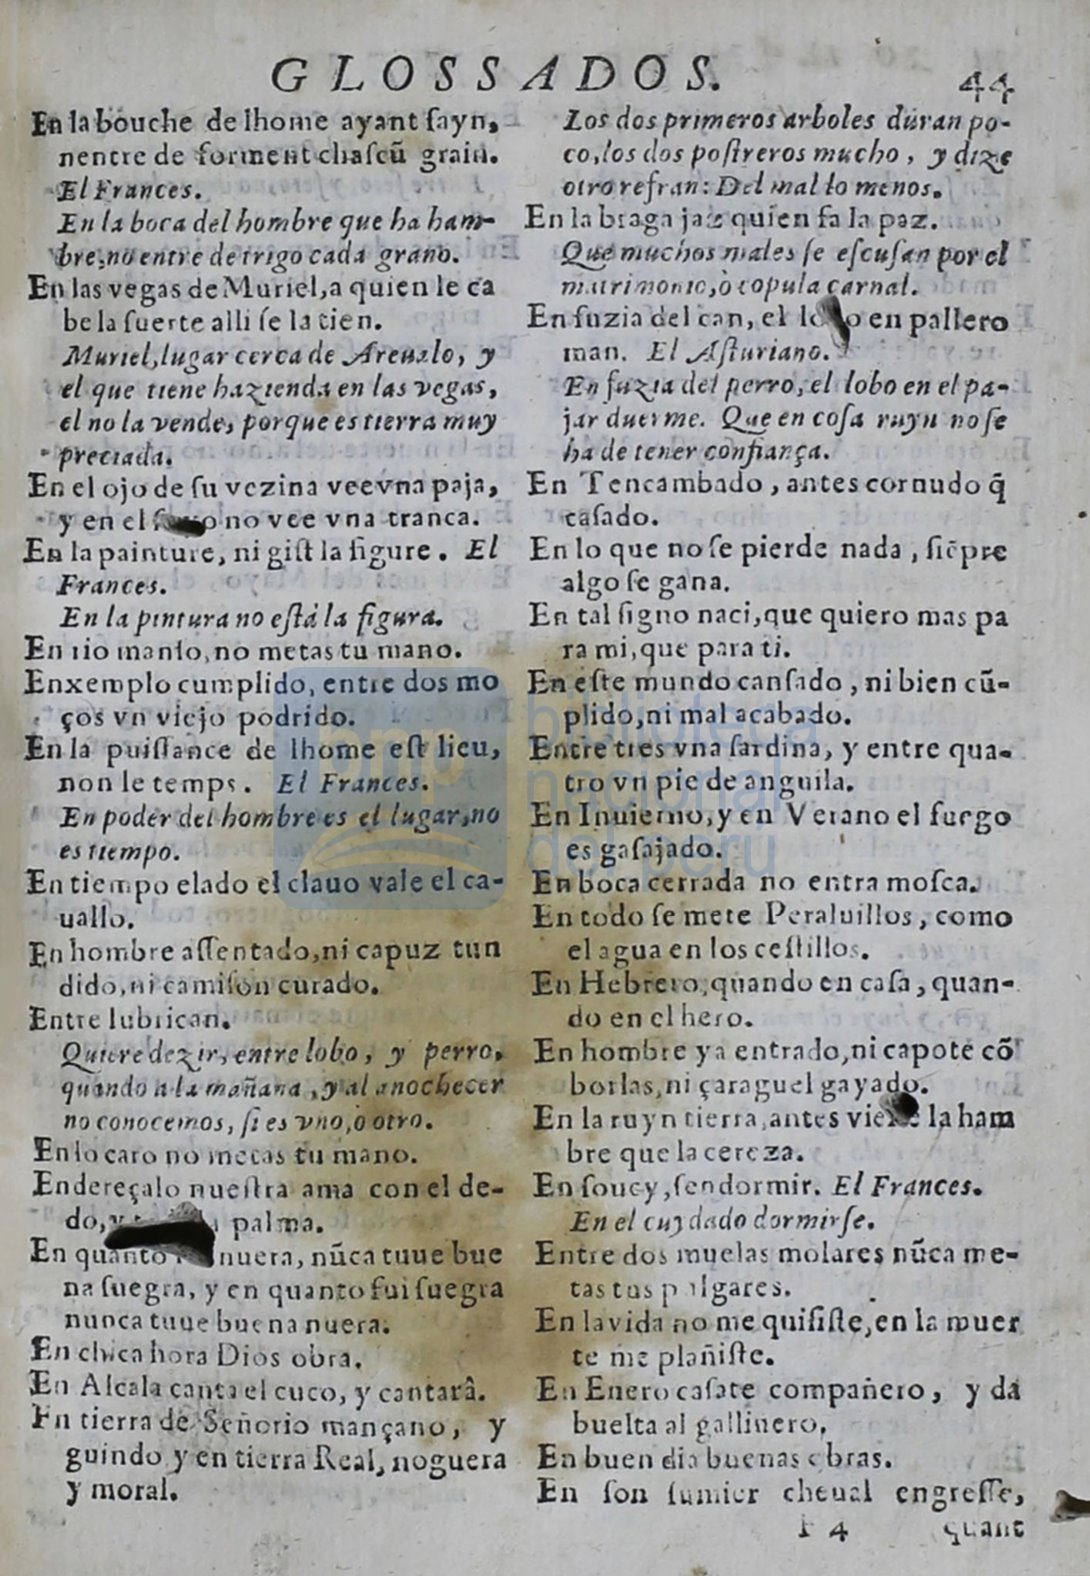 GLOSSADOS.
44
En la bouche de lhome ayant fayn,
nentre de forment chaſcũ grain.
El Frances.
En la boca del hombre que ha ham-
bre, no entre de trigo cada grano.
En las vegas de Muriel, a quien le ca
be la ſuerte alli ſe la tien.
Muriel, lugar cerca de Areualo, y
el que tiene hazienda en las vegas,
el no la vende, porque es tierra muy
preciada.
En el ojo de ſu vezina vee vna paja,
y en el no vee vna tranca.
En la painture, ni giſt la figure. El
Frances.
En la pintura no eſtá la figura.
En rio manſo, no metas tu mano.
Enxemplo cumplido, entre dos mo
ços vn viejo podrido.
En la puiſſance de lhome eſt lieu,
non le temps. El Frances.
En poder del hombre es el lugar, no
es tiempo.
En tiempo elado el clauo vale el ca-
uallo.
En hombre aſſentado, ni capuz tun
dido, ni camiſon curado.
Entre lubrican.
Quiere dezir, entre lobo, y perro,
quando a la mañana, y al anochecer
no conocemos, ſi es vno, ò otro.
En lo caro no metas tu mano.
Endereçalo nueſtra ama con el de-
do, palma.
En quanto nuera, nũca tuue bue
na ſuegra, y en quanto fui ſuegra
nunca tuue buena nuera.
En chica hora Dios obra.
En Alcala canta el cuco, y cantarâ.
En tierra de Señorio mançano, y
guindo y en tierra Real, noguera
y moral.
Los dos primeros arboles duran po-
co, los dos poſtreros mucho, y dize
otro refran: Del mal lo menos.
En la braga jaz quien fa la paz.
Que muchos males ſe eſcuſan por el
matrimonio, ò copula carnal.
En fuzia del can, el en pallero
man. El Aſturiano.
En fuzia del perro, el lobo en el pa-
jar duerme. Que en coſa ruyn no ſe
ha de tener confiança.
En Tencambado, antes cornudo q̃
caſado.
En lo que no ſe pierde nada, ſiẽpre
algo ſe gana.
En tal ſigno naci, que quiero mas pa
ra mi, que para ti.
En eſte mundo canſado, ni bien cũ-
plido, ni mal acabado.
Entre tres vna ſardina, y entre qua-
tro vn pie de anguila.
En Inuierno, y en Verano el fuego
es gaſajado.
En boca cerrada no entra moſca.
En todo ſe mete Peraluillos, como
el agua en los ceſtillos.
En Hebrero, quando en caſa, quan-
do en el hero.
En hombre ya entrado, ni capote cõ
borlas, ni çaraguel gayado.
En la ruyn tierra, antes viene la ham
bre que la cereza.
En ſoucy, ſendormir. El Frances.
En el cuydado dormirſe.
Entre dos muelas molares nũca me-
tas tus pulgares.
En la vida no me quiſiſte, en la muer
te me plañiſte.
En Enero caſate compañero, y da
buelta al gallinero.
En buen dia buenas obras.
En ſon fumier cheual engreſſe,
F 4
quant
biblioteca
nacional
del perú